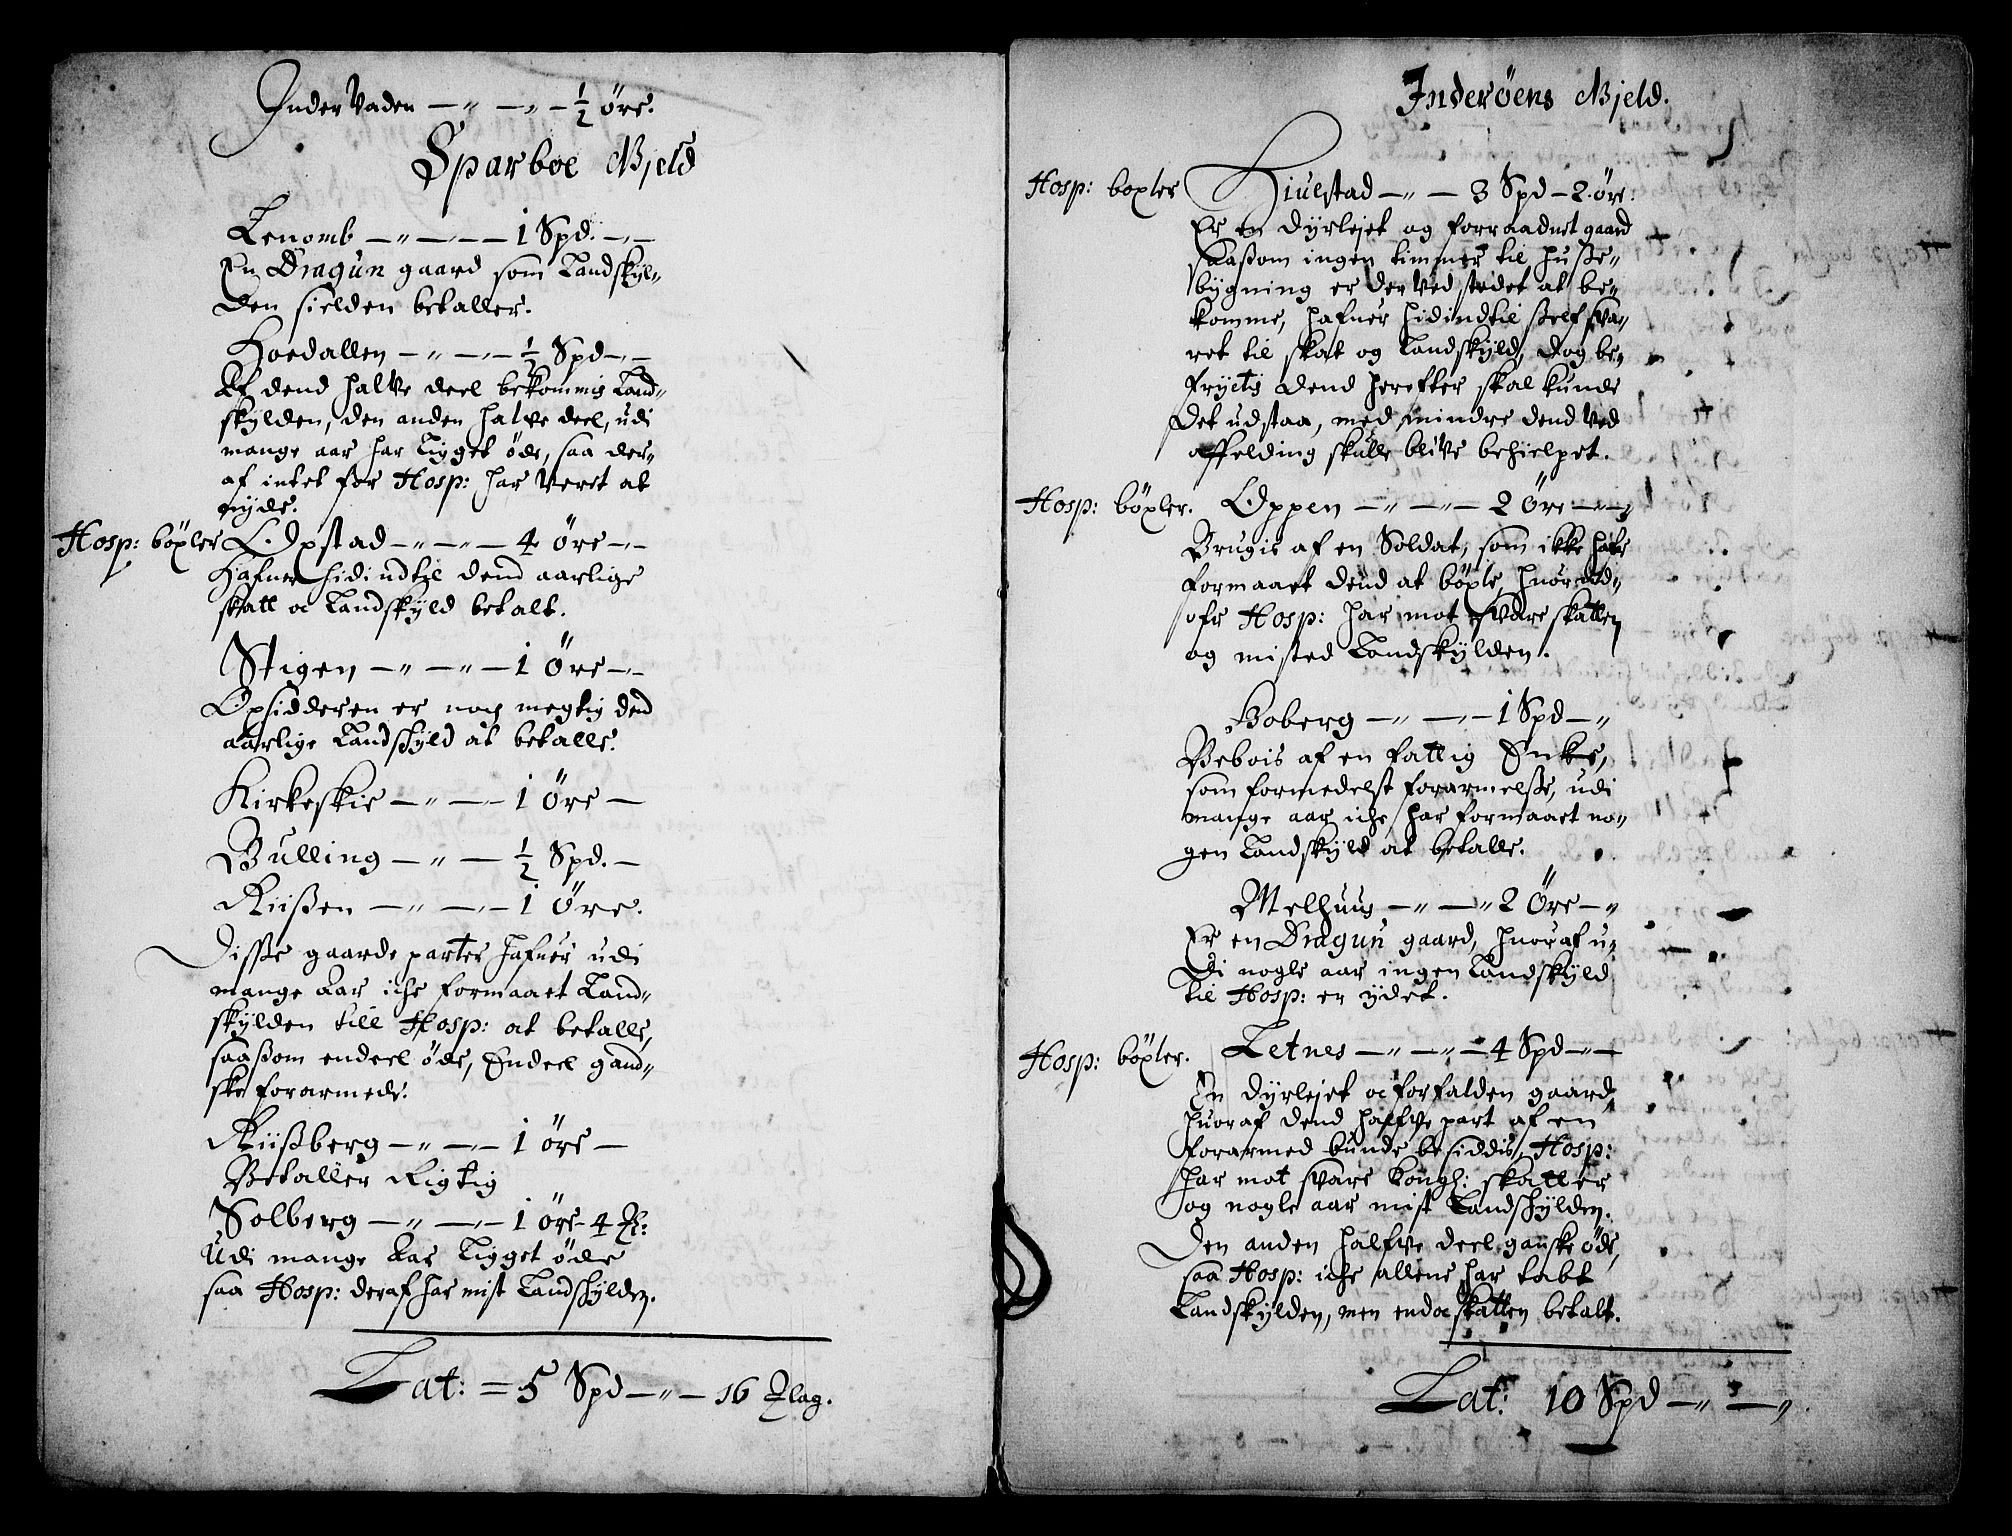 Inder Vaden — " — " — ½ öre.
Sparboe Gjeld
Lenomb — " — " — 1 Spd. — " —
En Dragun gaard som Landskyl-
den sielden betaller.
Hoedallen — " — " — ½ Spd — " —
Af dend halve deel bekommis Land-
skylden, den anden halve deel, udi
mange aar har ligget öde, saa der-
af intet for Hosp: har veret at
nyde.
Hosp: böxler Opstad — " — " — 4 öre — " —
Hafuer hidindtil dend aarlige
skatt oc Landskyld betalt.
Stigen — " — " — 1 Öre — " —
Opsidderen er noch megtig dend
aarlige Landskyld at betalle.
Kirkeskie — " — " — 1 Öre —
Bulling — " — ½ Spd. —
Riißen — " — " — 1 Öre.
Disse gaarde parter hafuer udi
mange Aar iche formaaet Land-
skylden till Hosp: at betalle,
saaßom endeel öde, Endeel gand-
ske forarmede.
Riißberg — " — " — 1 öre —
Betaller Rigtig
Solberg — " — " — 1 öre - 4 R:
Udi mange Aar Ligget öde
saa Hosp: deraf har mist Landskylden.
Lat: = 5 Spd — " — 16 Zlag.
Inderöens Gjeld.
Hosp: boxler Hiulstad — " — 3 Spd — 2 öre.
Er en dyrlejet og forraadnet gaard
saaßom ingen timmer til huße-
bygning er der ved stedet at be-
komme, hafuer hidindtil self sva-
ret til skat og Landskyld, dog be-
fryctis dend herefter skal kunde
det udstaa, med mindre dend ved
affelding skulle blive behielpet.
Hosp: böxler. Oppen — " — " — 2 Öre — " —
Brugis af en Soldat, som ikke hafr
formaaet dend at böxle, huor
ofr Hosp: har mot svare skatten
og misted Landskylden.
Boberg — " — " — 1 Spd — "
Bebois af en fattig Enke,
som formedelst forarmelße, udi
mange aar iche har formaaet no-
gen Landskyld at betalle.
Melhuus — " — " 2 Öre — "
Er en Dragun gaard, huoraf u-
di nogle aar ingen Landskyld
til Hosp: er ydet.
Hosp: böxler. Letnes — " — " — 4 Spd — " —
En dyrlejet oc forfalden gaard,
huoraf dend halfve part af en
forarmed bunde besiddis, Hosp:
har mot svare Kongl: skatter
og nogle aar mist Landskylden.
Den anden halfve deel ganske öde,
saa Hosp: iche allene har tabt
Landskylden, men endoc skatten betalt.
Lat: 10 Spd — " — "